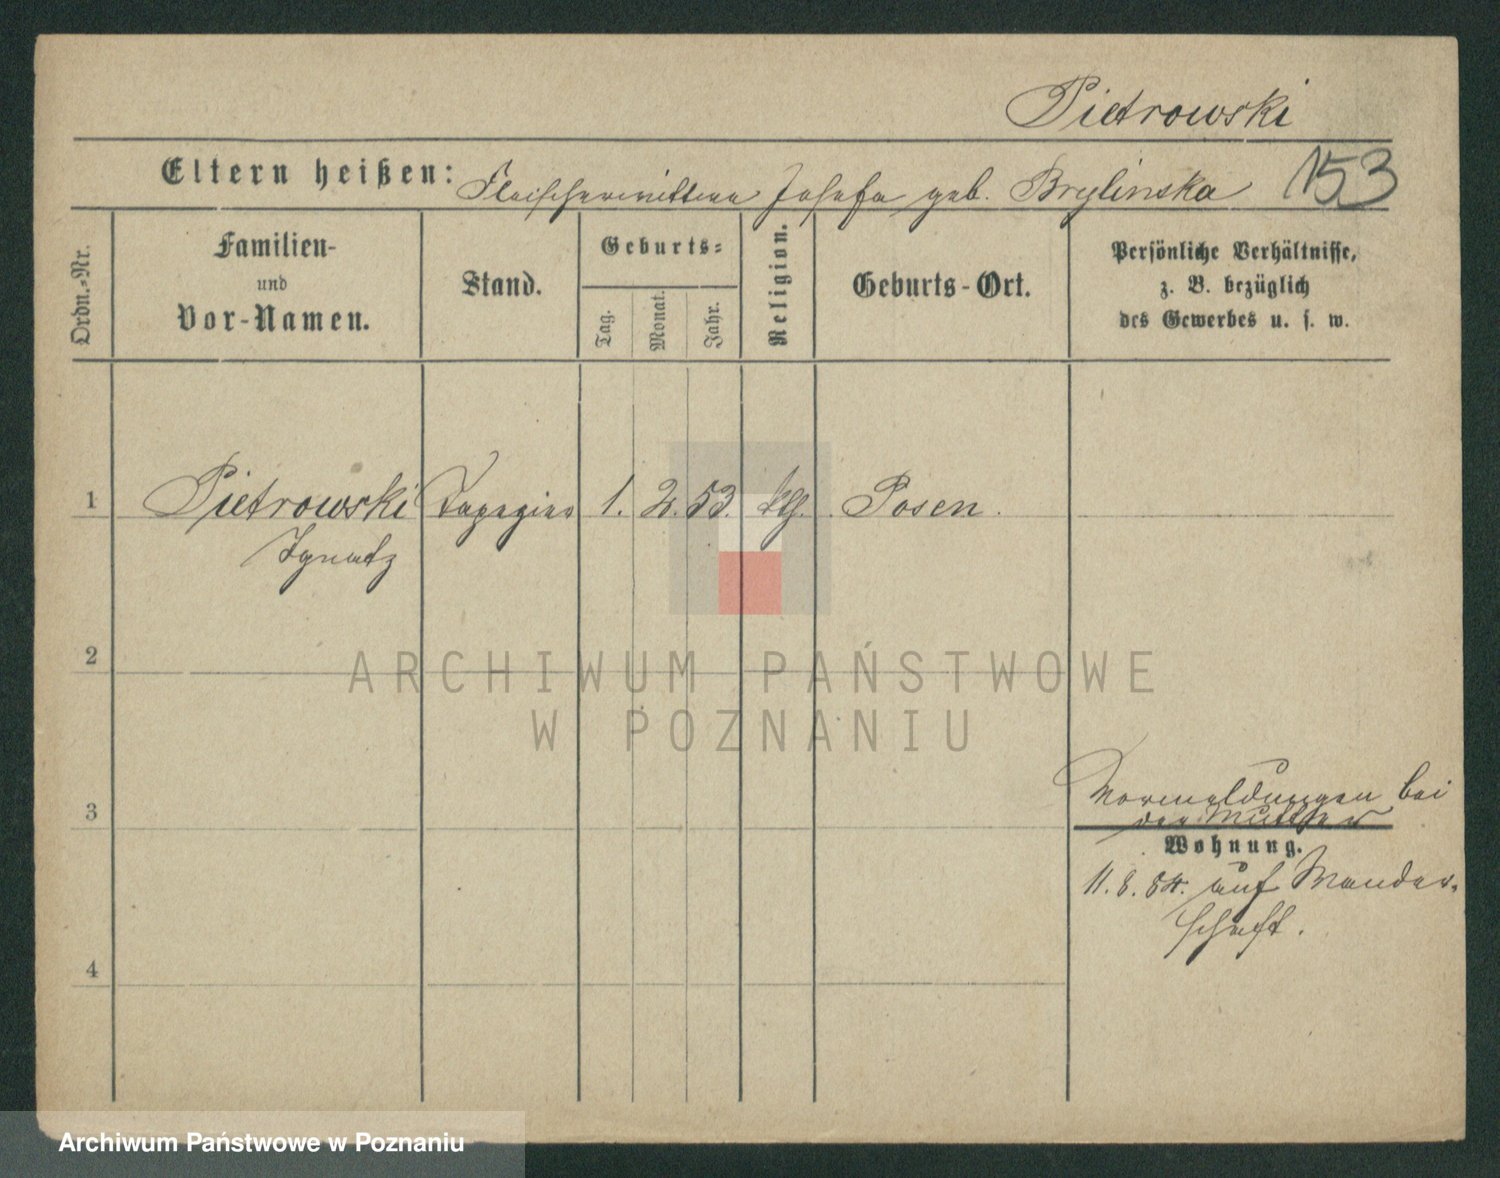 Pietrowski
Eltern heißen: Fleischerwittwe Josefa geb. Brylinska 153
Ordn.-Nr.
Familien-
und
Vor-Namen.
Stand.
Geburts-
Tag.
Monat.
Jahr.
Religion.
Geburts-Ort.
Persönliche Verhältnisse,
z. B. bezüglich
des Gewerbes u. s. w.
1 Pietrowski Tapezier 1. 2. 53. klh. Posen.
Ignatz
2
3
4
Vormeldungen bei
der Mutter
Wohnung.
11. 8. 84. auf Wander-
schaft.
ARCHIWUM PAŃSTWOWE
W POZNANIU
Archiwum Państwowe w Poznaniu